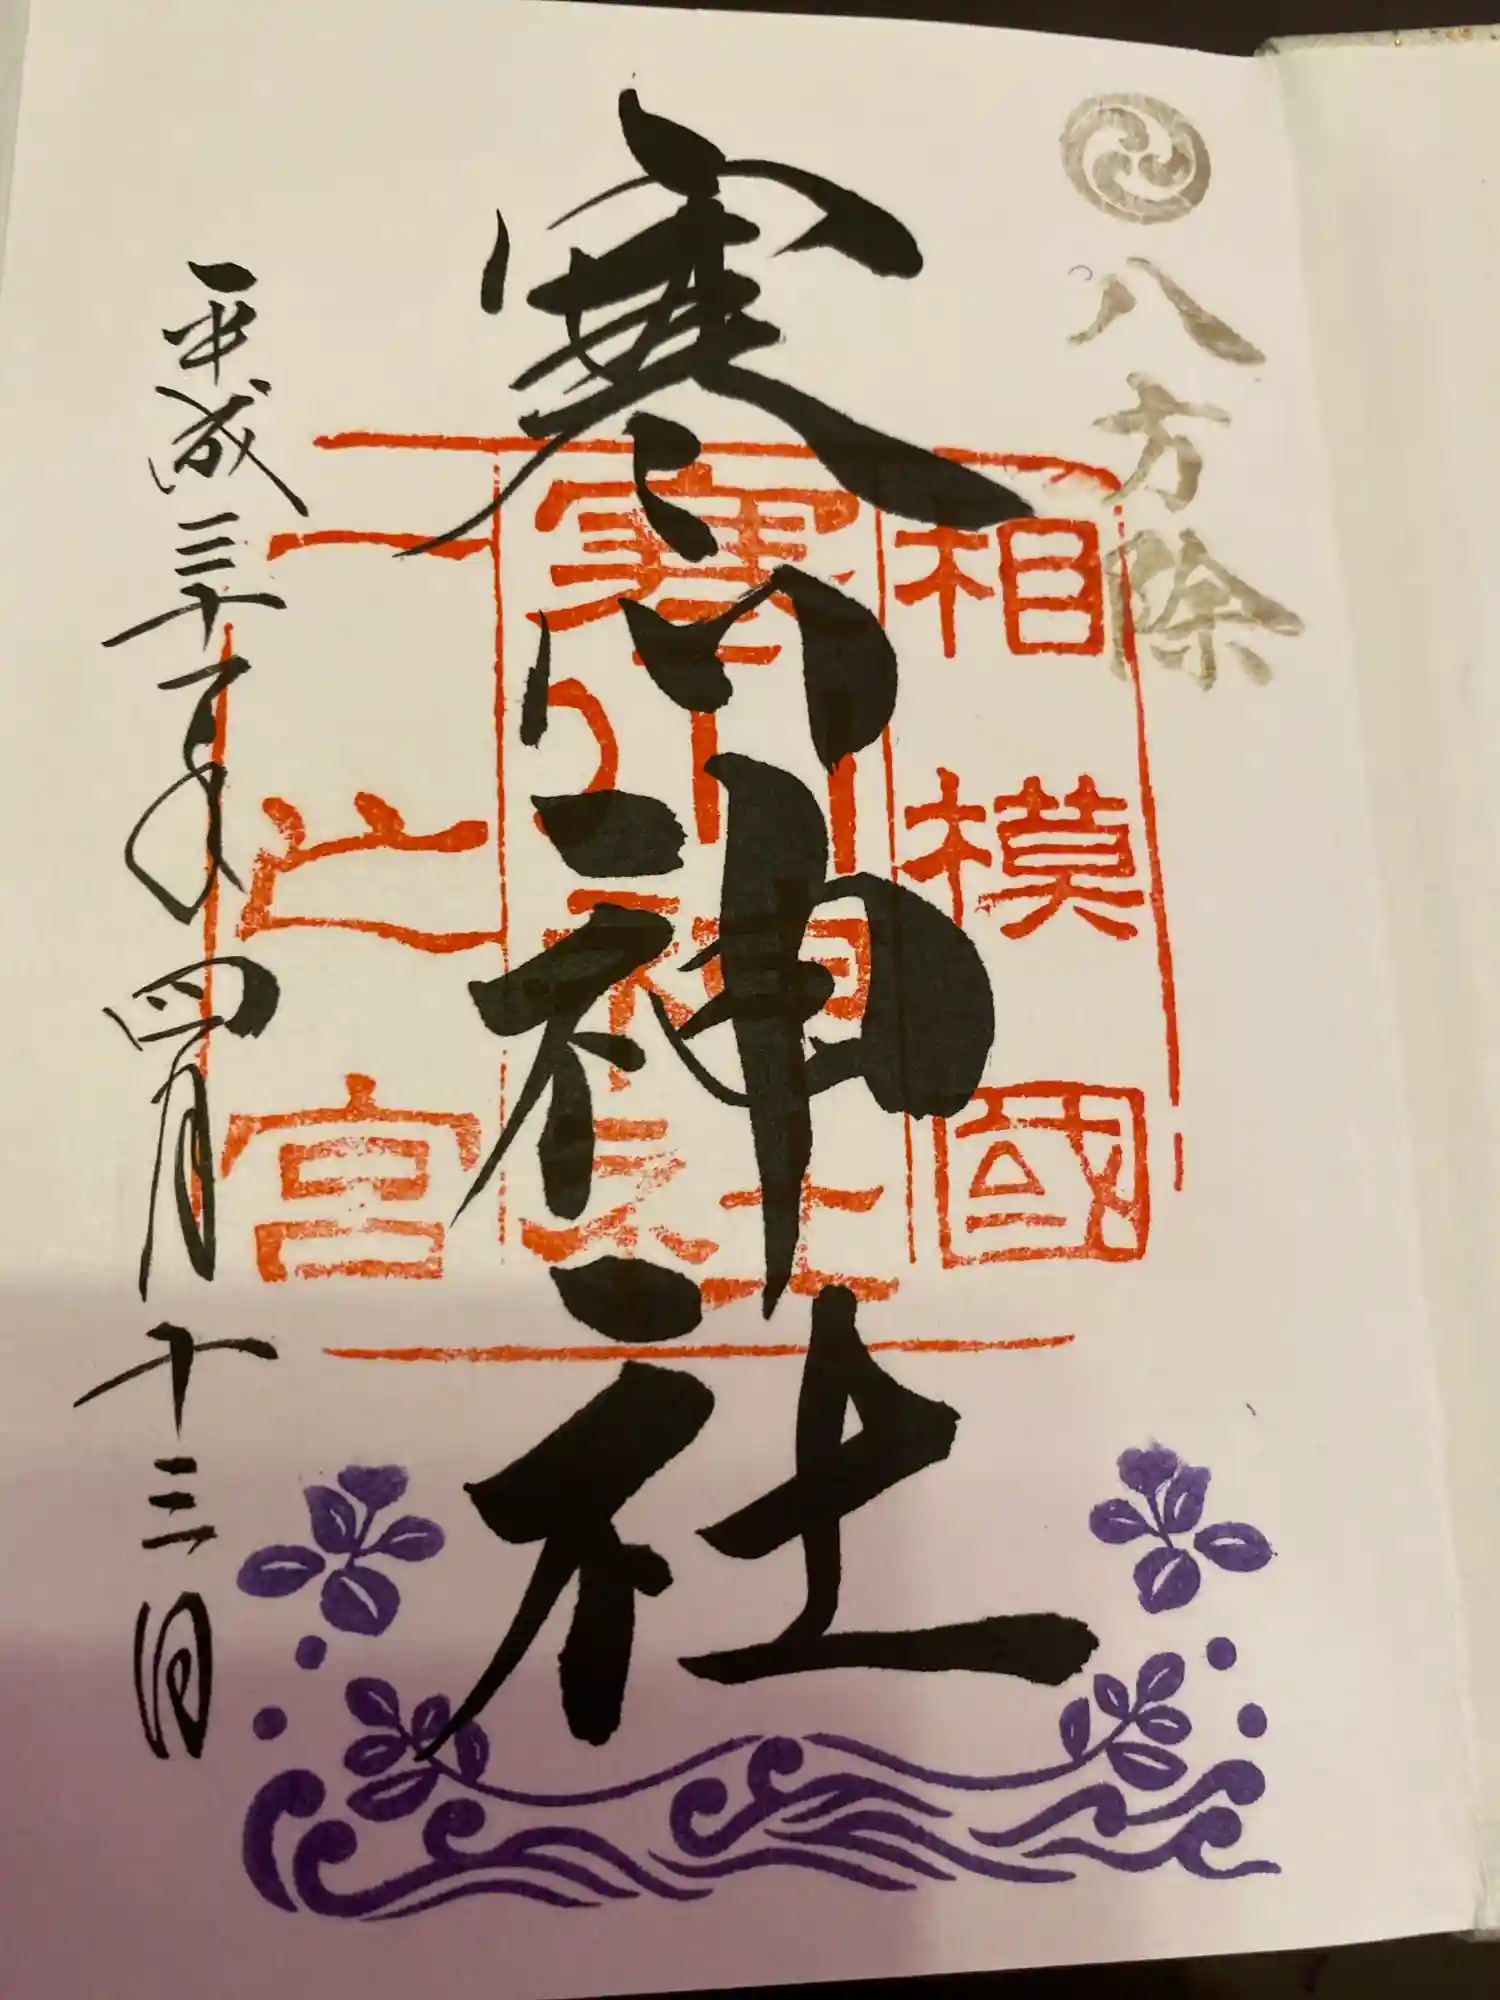 八方除
相模國
寒川神社
一之宮
寒川神社
平成三十一年四月十三日